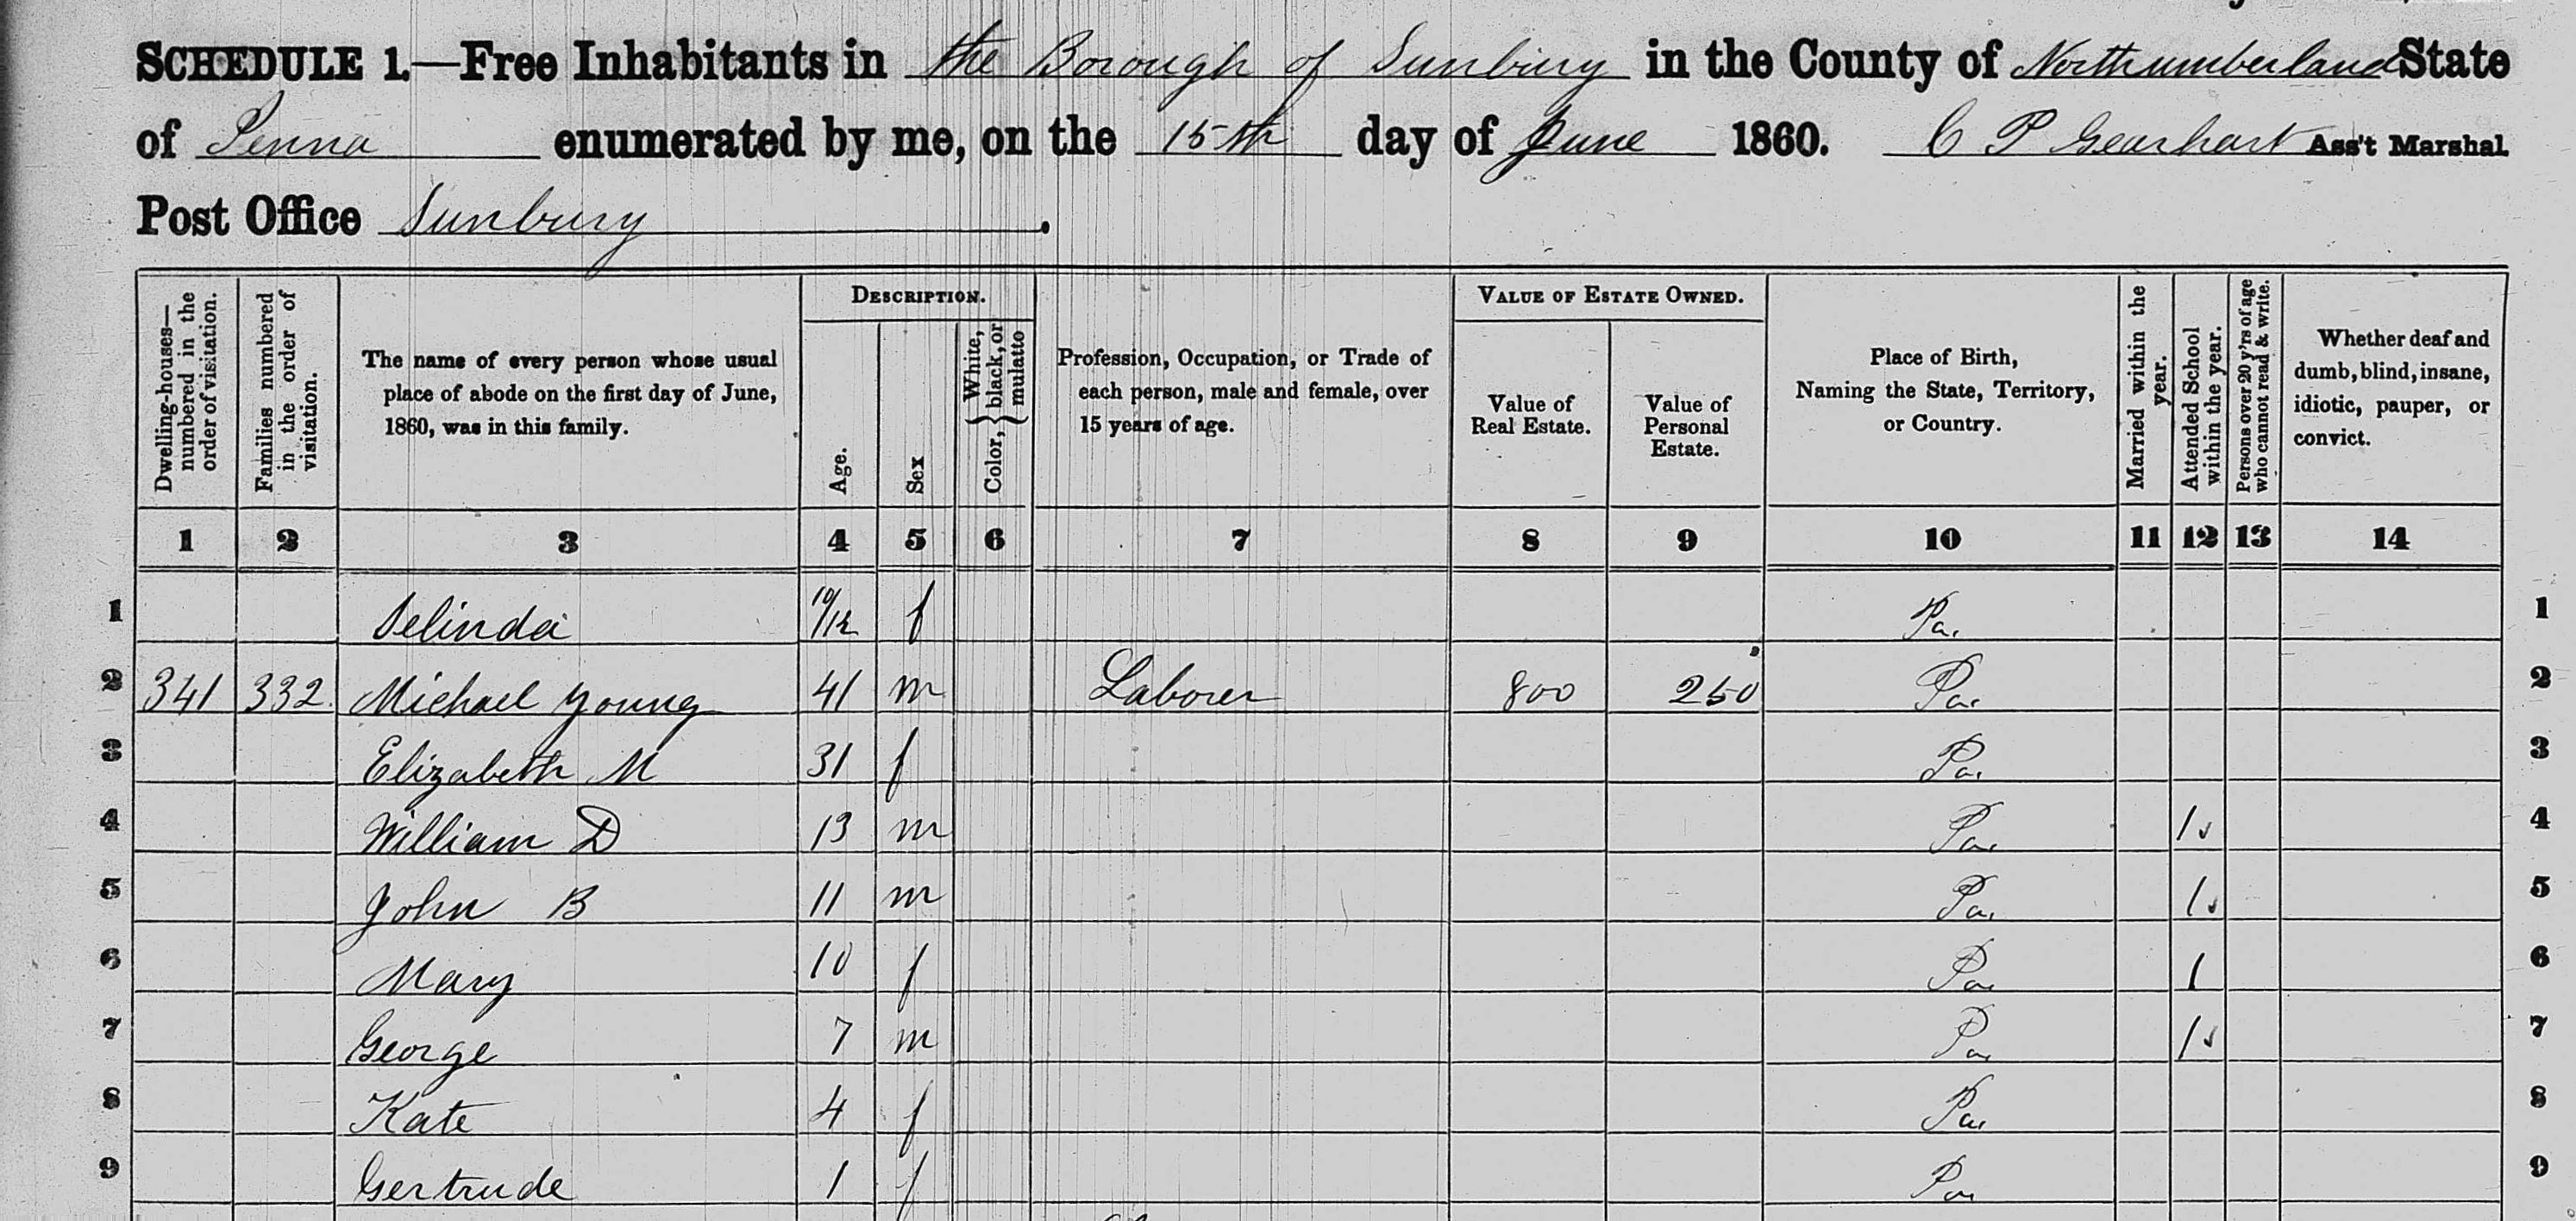 SCHEDULE 1.—Free Inhabitants in the Borough of Sunbury in the County of Northumberland State
of Penna enumerated by me, on the 15th day of June 1860. C P Gearhart Ass't Marshal.
Post Office Sunbury.
Dwelling-houses—numbered in the order of visitation.
Families numbered in the order of visitation.
The name of every person whose usual
place of abode on the first day of June,
1860, was in this family.
DESCRIPTION.
Age.
Sex
Color, { White, black, or mulatto
Profession, Occupation, or Trade of
each person, male and female, over
15 years of age.
VALUE OF ESTATE OWNED.
Value of
Real Estate.
Value of
Personal
Estate.
Place of Birth,
Naming the State, Territory,
or Country.
Married within the year.
Attended School within the year.
Persons over 20 y'rs of age who cannot read & write.
Whether deaf and
dumb, blind, insane,
idiotic, pauper, or
convict.
1 2 3 4 5 6 7 8 9 10 11 12 13 14
1 Selinda 10/12 f Pa. 1
2 341 332 Michael Young 41 m Laborer 800 250 Pa. 2
3 Elizabeth M 31 f Pa. 3
4 William D 13 m Pa. 1 ✓ 4
5 John B 11 m Pa. 1 ✓ 5
6 Mary 10 f Pa. 1 6
7 George 7 m Pa. 1 ✓ 7
8 Kate 4 f Pa. 8
9 Gertrude 1 f Pa 9